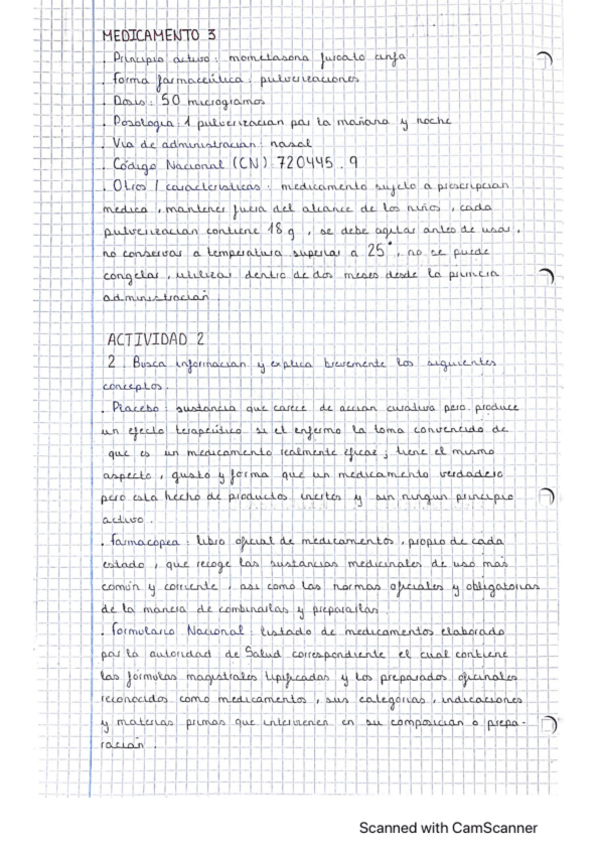 MEDICAMENTO 3
. Principio activo : mometasona furoato cinfa
. Forma farmaceútica : pulverizaciones
. Dosis : 50 microgramos
. Posología : 1 pulverización por la mañana y noche
. Vía de administración : nasal
. Código Nacional (CN) 720445.9
. Otros / características : medicamento sujeto a prescripción
médica , mantener fuera del alcance de los niños , cada
pulverización contiene 18 g , se debe agitar antes de usar ,
no conservar a temperatura superior a 25° , no se puede
congelar , utilizar dentro de dos meses desde la primera
administración .
ACTIVIDAD 2
2 . Busca información y explica brevemente los siguientes
conceptos .
. Placebo : sustancia que carece de acción curativa pero produce
un efecto terapéutico si el enfermo la toma convencido de
que es un medicamento realmente eficaz ; tiene el mismo
aspecto , gusto y forma que un medicamento verdadero
pero está hecho de productos inertes y sin ningun principio
activo .
. Farmacopea : libro oficial de medicamentos , propio de cada
estado , que recoge las sustancias medicinales de uso más
común y corriente , así como las normas oficiales y obligatorias
de la manera de combinarlas y prepararlas .
. Formulario Nacional : listado de medicamentos elaborado
por la autoridad de Salud correspondiente el cual contiene
las fórmulas magistrales tipificadas y los preparados oficinales
reconocidos como medicamentos , sus categorías , indicaciones
y materias primas que intervienen en su composición o prepa-
ración .
Scanned with CamScanner